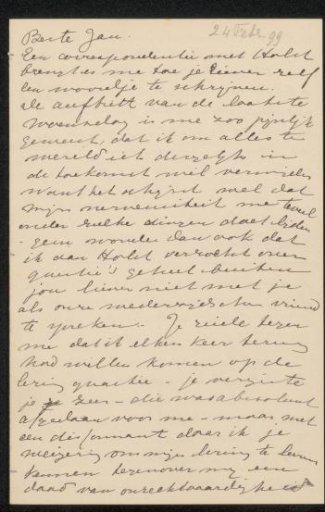 24 Febr. 99
Beste Jan.
Een correspondentie met Holst
brengt es me toe je liever zelf
een woordje te schrijven.
de van de laatste
Woensdag is me zoo pijnlijk
geweest, dat ik om alles te
wereld iets dergelijks in
de toekomst wil vermijden
want het schijnt wel dat
mijn nervositeit me teveel
onder zulke dingen doet lijden
- geen wonder dan ook dat
ik aan Holst verzocht over
quaestie's geheel buiten
jou liever niet met je
als onze wederzijdschen vriend
te spreken. - Je zeide tegen
me dat ik elken keer terug
had willen komen op de
lering quaestie - je vergiste
je zeer - die was absoluut
afgedaan voor me - maar met
een dis waar ik je
weigering om mijn lering te leeren
kennen tegenover mij een
daad van onrechtvaardigheid